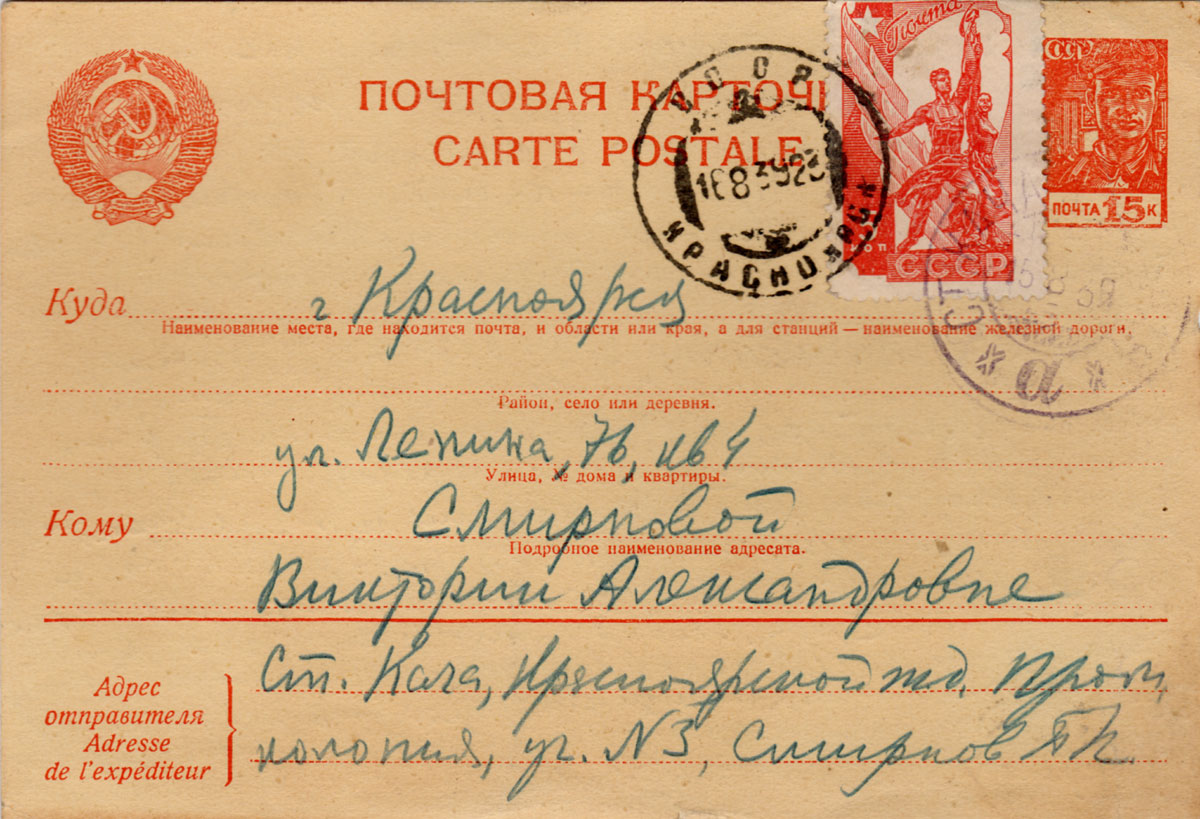 Почта
СССР
ПОЧТОВАЯ КАРТОЧ
CARTE POSTALE
СССР
КРАСНОЯРСК
16 8 39 23
КОП
СССР
ПОЧТА 15 К
Куда г Красноярск
Наименование места, где находится почта, и области или края, а для станций — наименование железной дороги.
Район, село или деревня.
ул. Ленина, 76, кв 4
Улица, № дома и квартиры.
Кому Смирновой
Подробное наименование адресата.
Виктории Александровне
Адрес
отправителя
Adresse
de l'expéditeur
Ст. Кача, Красноярской жд. Пром
колония, уч. N3, Смирнов
а